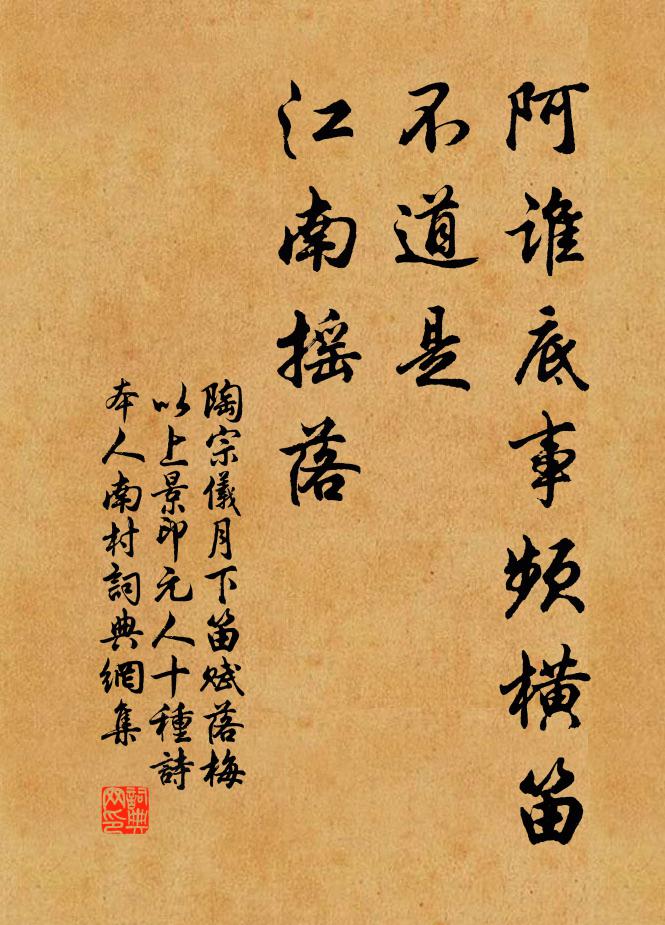 阿谁底事频横笛
不道是
江南摇落
陶宗儀月下笛赋落梅
以上景印元人十種詩
本人南村詞典網集
詞典網印